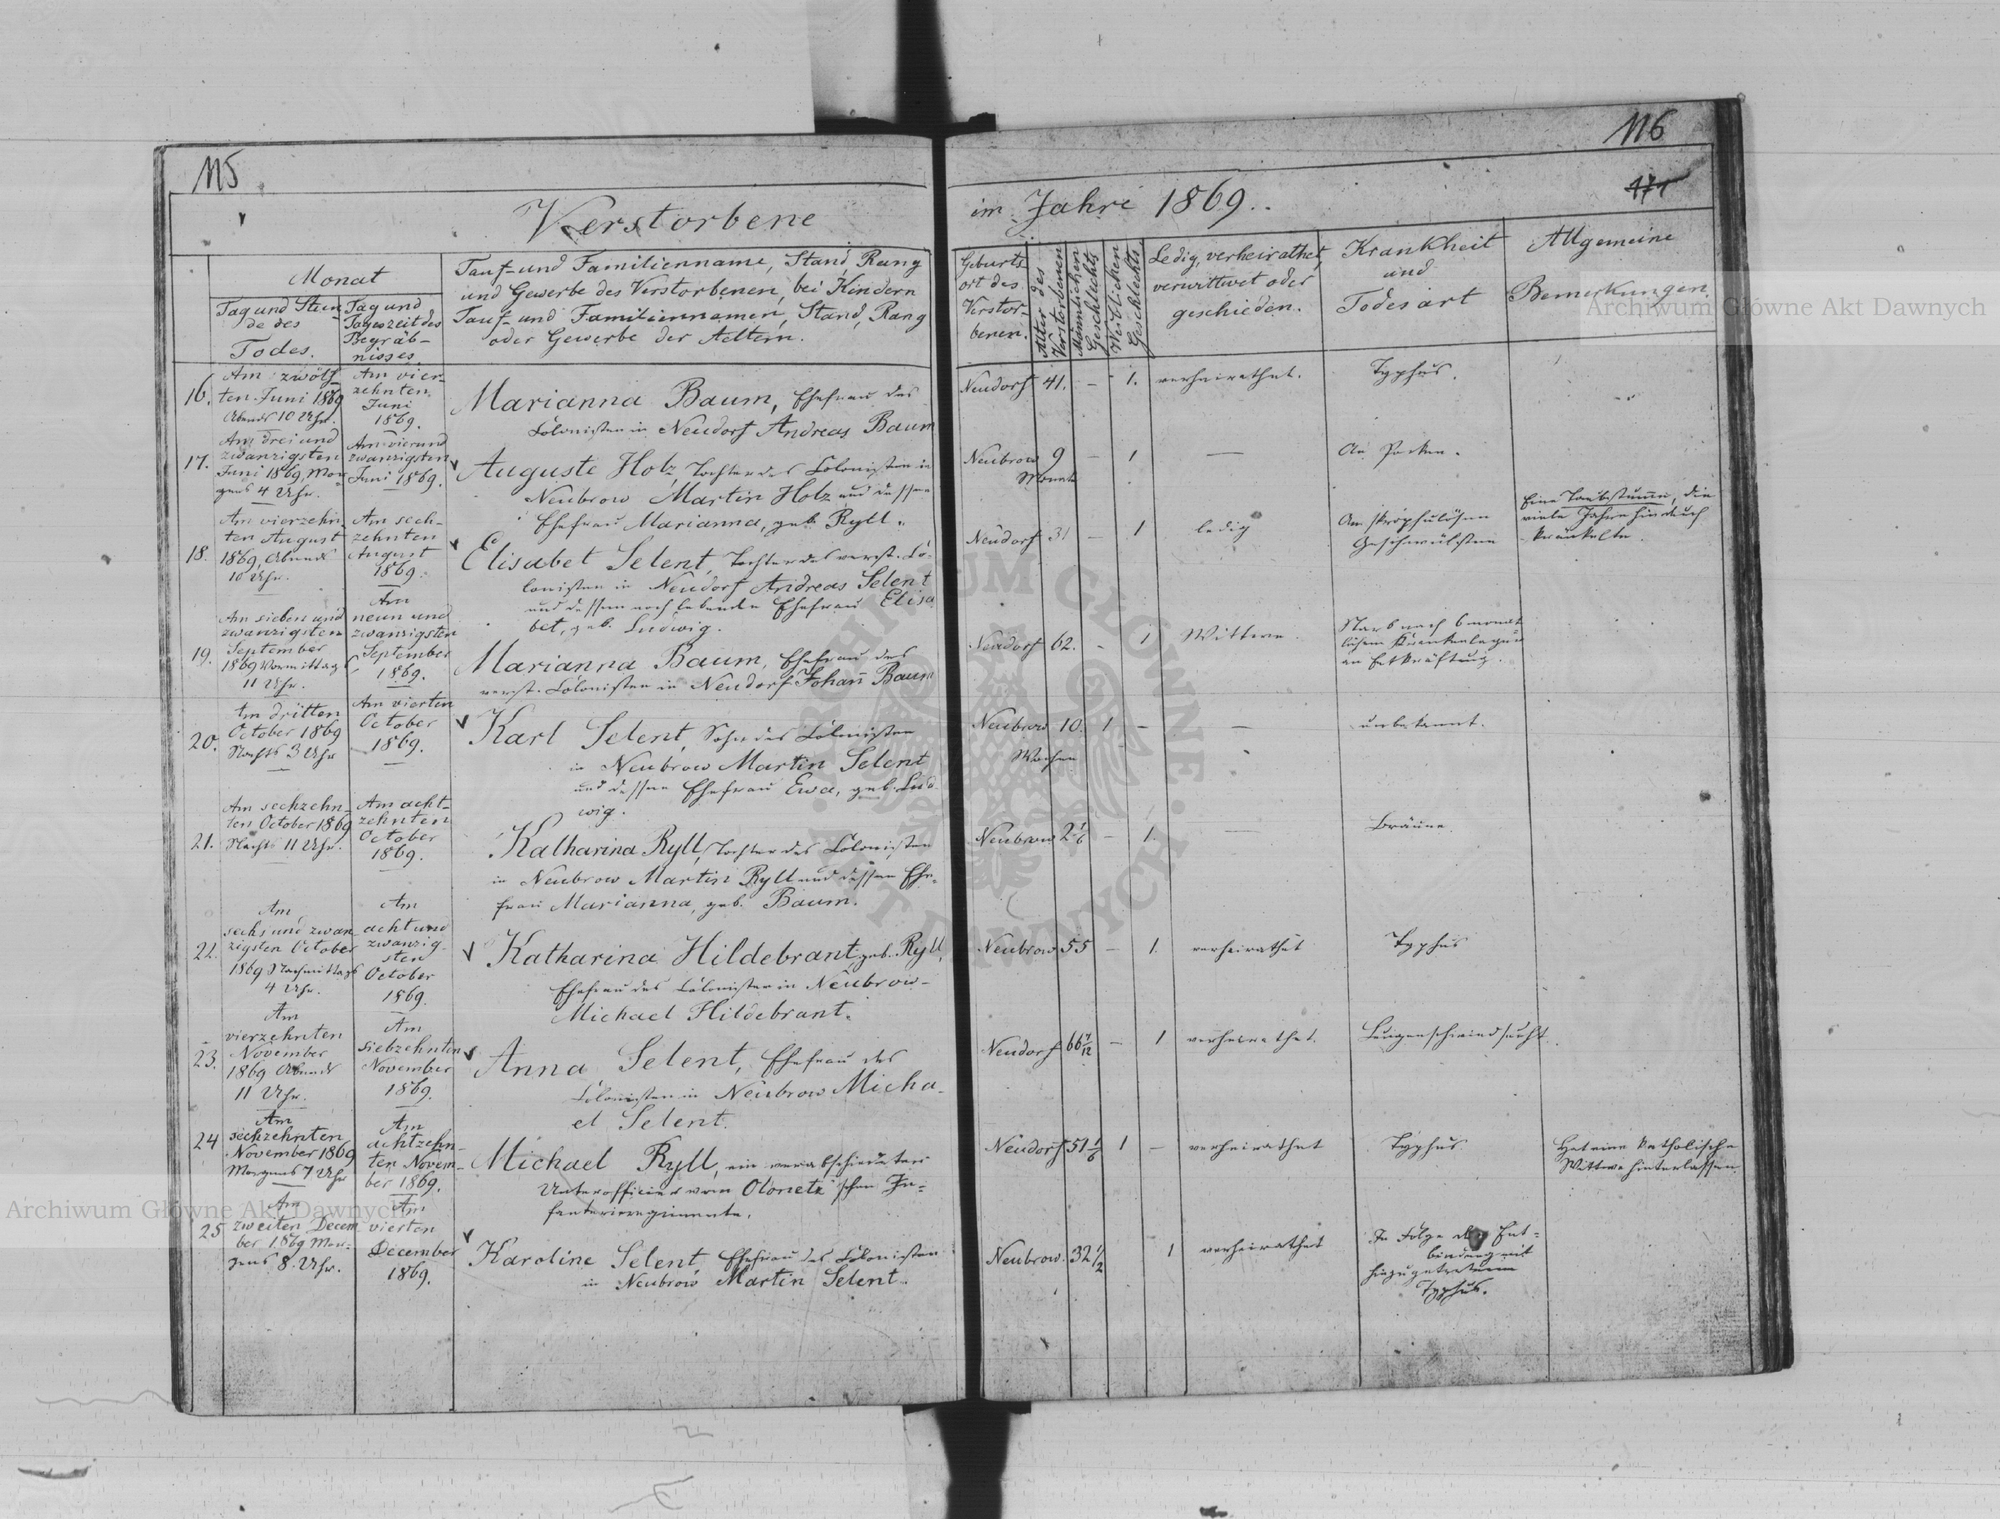 115
116
171
Verstorbene
im Jahre 1869.
Monat
Tag und Stun
de des
Todes.
Tag und
Tageszeit des
Begräb-
nisses.
Tauf- und Familienname, Stand, Rang
und Gewerbe des Verstorbenen, bei Kindern
Tauf- und Familiennamen, Stand, Rang
oder Gewerbe der Aeltern.
Geburts
ort des
Verstor,
benen.
Alter des
Verstorbenen
Männlichen
Geschlechts
Weiblichen
Geschlechts
Ledig, verheirathet,
verwittwet oder
geschieden.
Krankheit
und
Todesart
Allgemeine
Bemerkungen.
16.
Am zwölf-
ten Juni 1869
Abends 10 Uhr.
Am vier-
zehnten
Juni
1869.
Marianna Baum, Ehefrau des
Colonisten in Neudorf Andreas Baum
Neudorf 41. – 1. verheirathet. Typhus.
17.
Am drei und
zwanzigsten
Juni 1869, Mor-
gens 4 Uhr.
Am vier und
zwanzigsten
Juni 1869.
Auguste Holz, Tochter des Colonisten in
Neubrow Martin Holz und dessen
Ehefrau Marianna, geb. Ryll.
Neubrow 9 – 1 — An Pocken.
Monate
18.
Am vierzehn
ten August
1869, Abends
10 Uhr.
Am sech-
zehnten
August
1869.
Elisabet Selent, Tochter des verst. Co-
lonisten in Neudorf Andreas Selent
und dessen noch lebende Ehefrau Elisa
bet, geb. Ludwig.
Neudorf 31 – 1 ledig
An skrophulösen
Geschwülsten
Eine Taubstumme, die
viele Jahre hindurch
kränkelte.
19.
Am sieben und
zwanzigsten
September
1869 Vormittags
11 Uhr.
Am
neun und
zwanzigsten
September
1869.
Marianna Baum, Ehefrau des
verst. Colonisten in Neudorf Johan̄ Baum
Neudorf 62. – 1 Wittwe.
Starb nach 6 monat
lichem Krankenlager
an Entkräftung.
20.
Am dritten
October 1869
Nachts 3 Uhr
Am vierten
October
1869.
Karl Selent, Sohn des Colonisten
in Neubrow Martin Selent
und dessen Ehefrau Ewa, geb. Lud
wig.
Neubrow 10. 1 – — unbekannt.
Wochen
21.
Am sechzehn-
ten October 1869
Nachts 11 Uhr.
Am acht-
zehnten
October
1869.
Katharina Ryll, Tochter des Colonisten
in Neubrow Martin Ryll und dessen Ehe-
frau Marianna, geb. Baum.
Neubrow 2 1/6 – 1. — Bräune.
22.
Am
sechs und zwan
zigsten October
1869 Nachmittags
4 Uhr.
Am
acht und
zwanzig-
sten
October
1869.
Katharina Hildebrant, geb. Ryll,
Ehefrau des Colonisten in Neubrow
Michael Hildebrant.
Neubrow 55 – 1. verheirathet Typhus
23.
Am
vierzehnten
November
1869 Abends
11 Uhr.
Am
siebzehnten
November
1869.
Anna Selent, Ehefrau des
Colonisten in Neubrow Micha-
el Selent.
Neudorf 66 7/12 – 1 verheirathet. Lungenschwindsucht.
24
Am
sechzehnten
November 1869
Morgens 7 Uhr
Am
achtzehn-
ten Novem-
ber 1869.
Michael Ryll, ein verabschiedeter
Unterofficier vom Olonetz'schen In-
fanterieregimente.
Neudorf 51 1/6 1 – verheirathet Typhus.
Hat eine katholische
Wittwe hinterlassen
25
Am
zweiten Decem
ber 1869 Mor-
gens 8 Uhr.
Am
vierten
December
1869.
Karoline Selent, Ehefrau des Colonisten
in Neubrow Martin Selent.
Neubrow. 32 1/2 1 verheirathet
In Folge der Ent-
bindung mit
hinzugetretenem
Typhus.
Archiwum Główne Akt Dawnych
Archiwum Główne Akt Dawnych
ARCHIWUM GŁÓWNE · AKT DAWNYCH ·